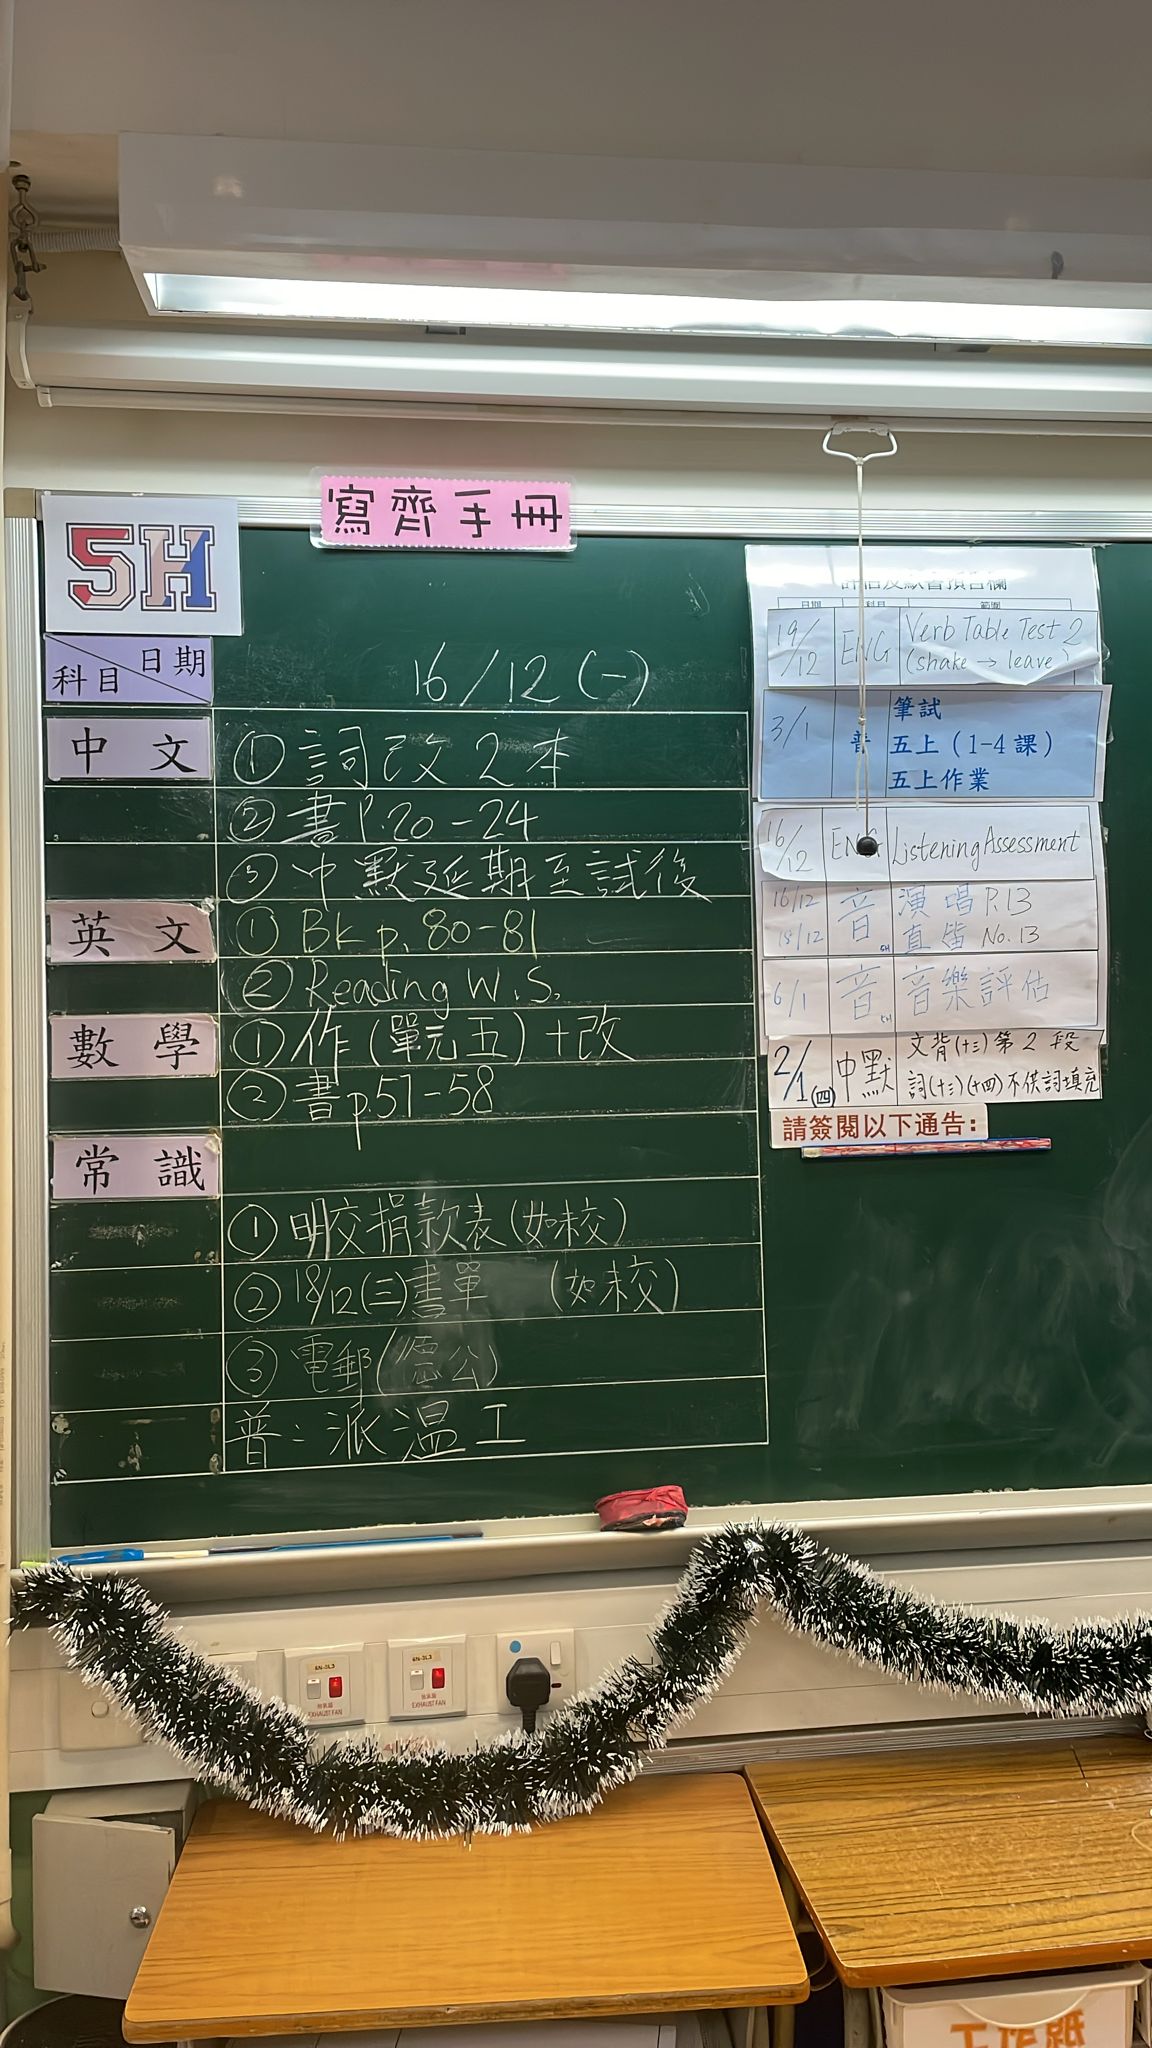 寫齊手冊
5H
日期
科目
16/12 (一)
中文
① 詞己改 2本
② 書P.20-24
③ 中默延期至試後
英文
① Bk p. 80-81
② Reading W.S.
數學
① 作(單元五)+改
② 書p.57-58
常識
① 明交捐款表(如未交)
② 18/12(三)書單 (如未交)
③ 電郵(
普：派溫工
日期 科目 範圍
19/12 ENG Verb Table Test 2
(shake → leave)
3/1 普 筆試
五上 (1-4 課)
五上作業
16/12 ENG Listening Assessment
16/12 音 演唱 P.13
18/12 直笛 No.13
5H
6/1 音 音樂評估
5H
2/1(四) 中默 文背(十三)第2段
詞(十三)(十四)不供詞填充
請簽閱以下通告:
6N-3L3
抽氣扇
EXHAUST FAN
6N-3L3
抽氣扇
EXHAUST FAN
工作紙